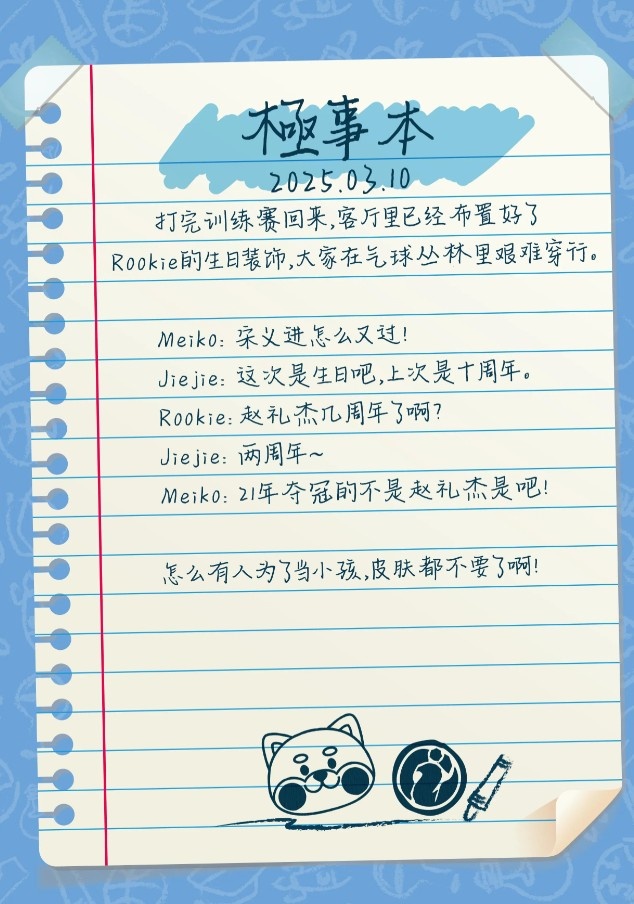 極事本
2025.03.10
打完训练赛回来,客厅里已经布置好了
Rookie的生日装饰,大家在气球丛林里艰难穿行。
Meiko: 宋义进怎么又过!
Jiejie: 这次是生日吧,上次是十周年。
Rookie: 赵礼杰几周年了啊?
Jiejie: 两周年~
Meiko: 21年夺冠的不是赵礼杰是吧!
怎么有人为了当小孩,皮肤都不要了啊!